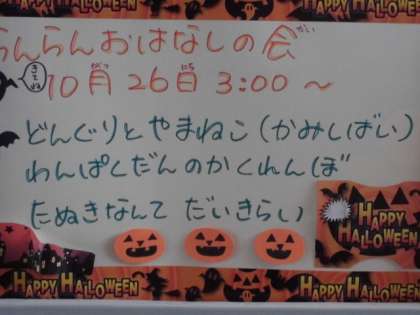 HAPPY HALLOWEEN
らんらんおはなしの会
かい
きてね
10月26日 3:00～
がつ にち
どんぐりとやまねこ(かみしばい)
わんぱくだんのかくれんぼ
たぬきなんて だいきらい
HAPPY
HALLOWEEN
HAPPY HALLOWEEN
HAPPY HALLOWEEN